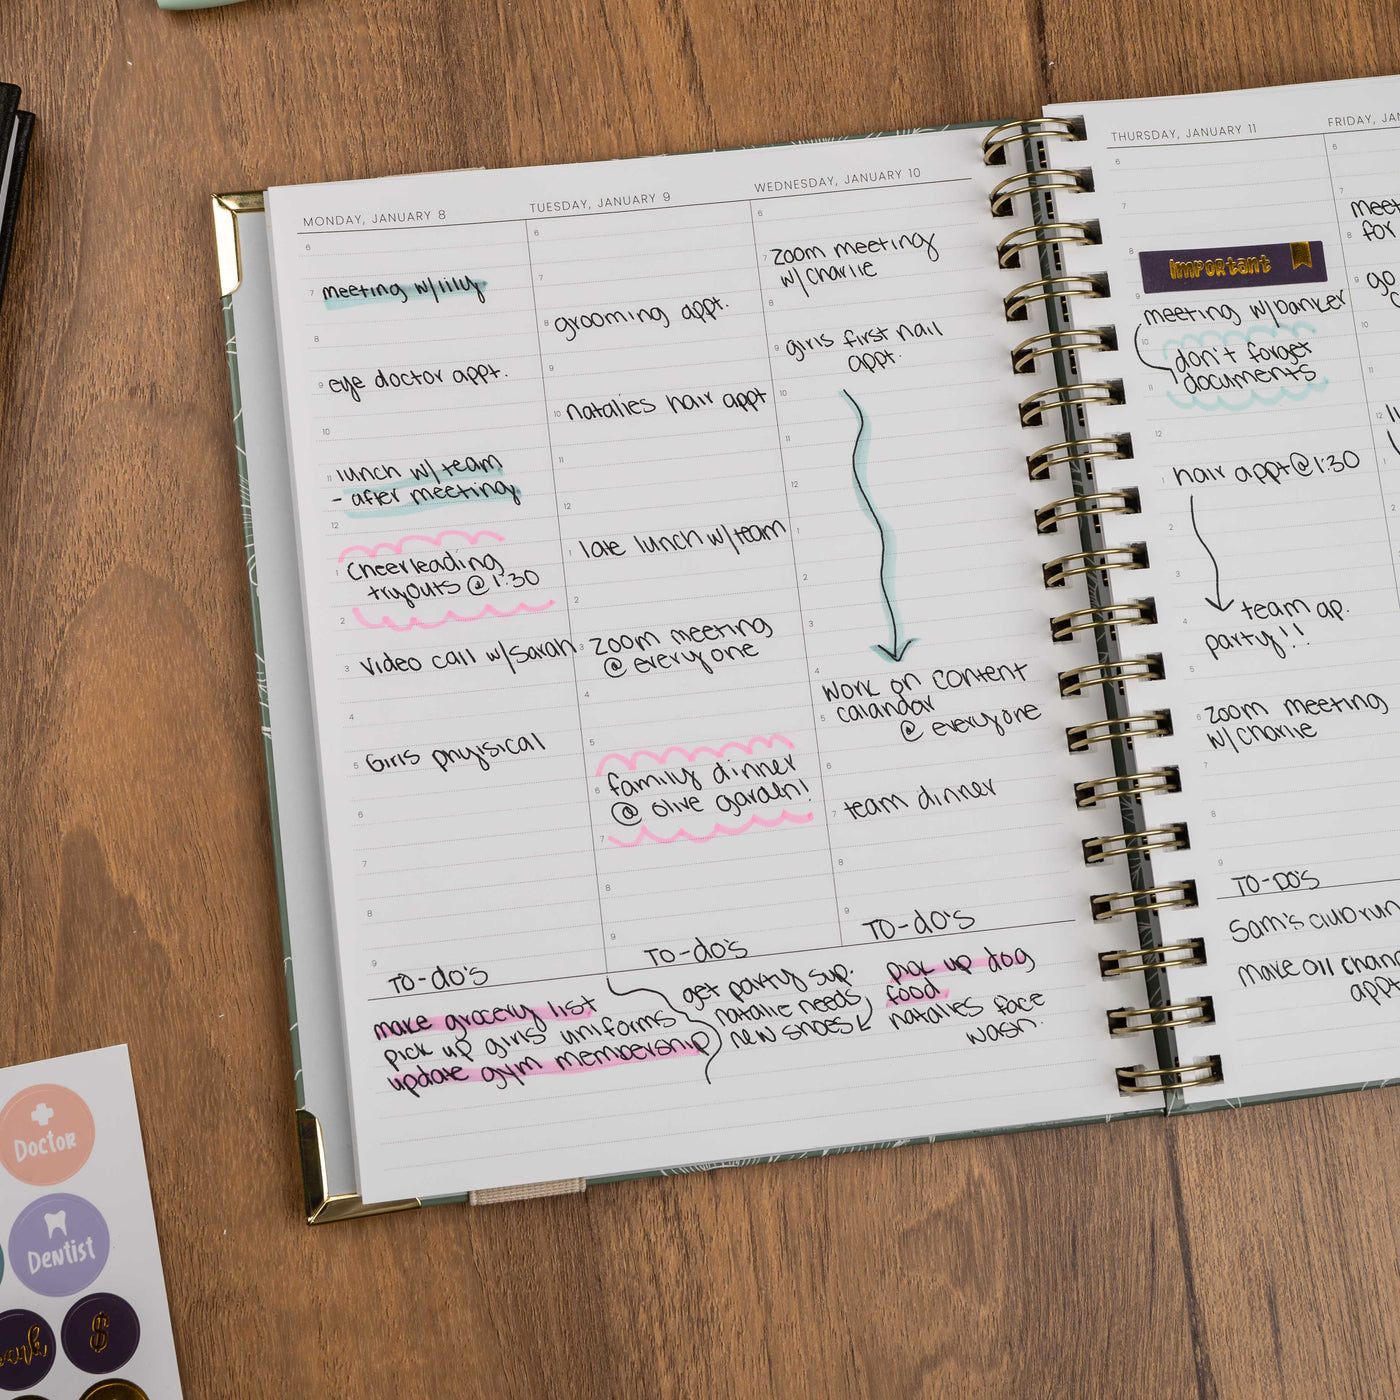 MONDAY, JANUARY 8
6
7 meeting w/lily
8
9 eye doctor appt.
10
11 lunch w/ team
- after meeting
12
1 Cheerleading
tryouts @ 1:30
2
3 video call w/Sarah
4
5 Girls phyisical
6
7
8
9
TO-do's
make grocery list
pick up girls uniforms
update gym membership
TUESDAY, JANUARY 9
6
7
8 grooming appt.
9
10 natalies hair appt
11
12
1 late lunch w/team
2
3 Zoom meeting
@ everyone
4
5
6 family dinner
@ olive garden!
7
8
9
TO-do's
get party sup.
natalie needs
new shoes
WEDNESDAY, JANUARY 10
6
7 zoom meeting
w/ Charlie
8
9 girls first nail
appt.
10
11
12
1
2
3
4
work on content
5 calandar
@ everyone
6
7 team dinner
8
9
TO-do's
pick up dog
food
natalies face
wash.
THURSDAY, JANUARY 11
6
7
8
Important
9
meeting w/banker
10
don't forget
11 documents
12
1 hair appt @ 1:30
2
3
4 team ap.
party!!
5
6 zoom meeting
w/ Charlie
7
8
9
TO-DO'S
Sam's club run
make oil chan
appt
FRIDAY, JAN
6
7
meet
8 for
9 go
10
12
1
2
Doctor
Dentist
$